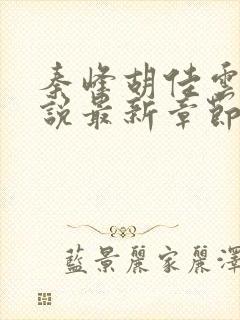 秦峰胡佳雲
說最新章節
藍景麗家麗澤